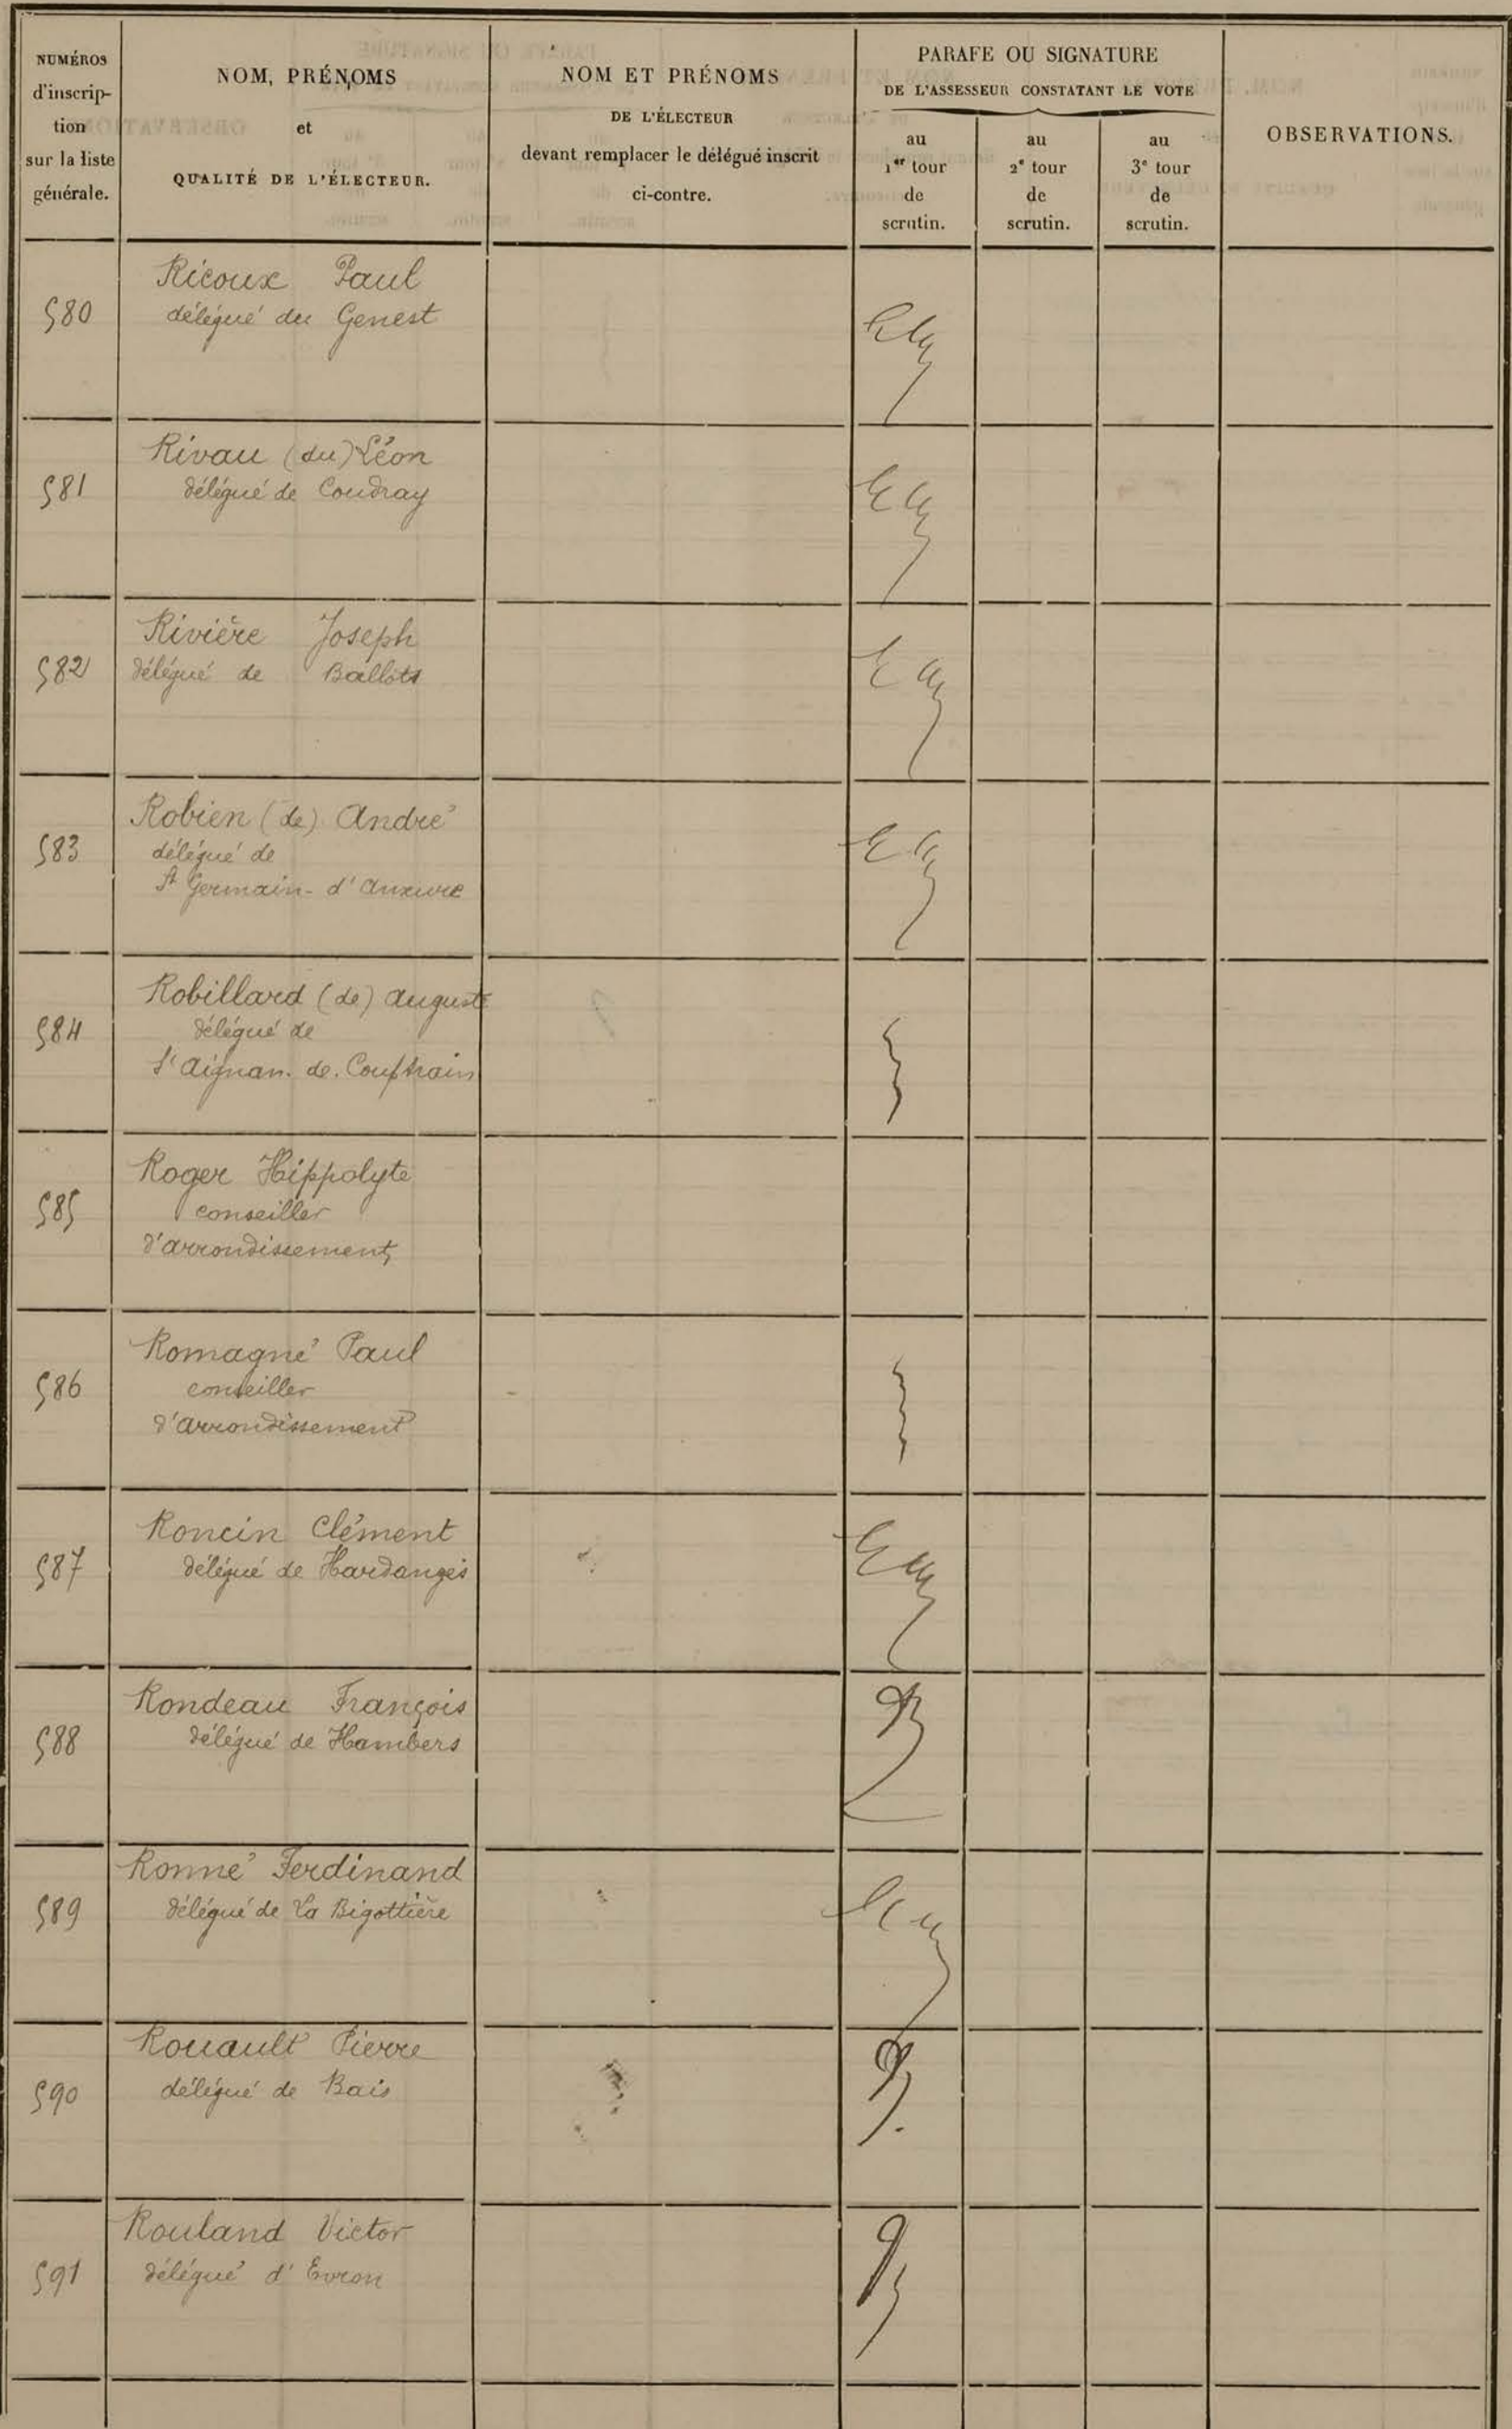 NUMÉROS
d'inscrip-
tion
sur la liste
générale.
NOM, PRÉNOMS
et
QUALITÉ DE L'ÉLECTEUR.
NOM ET PRÉNOMS
DE L'ÉLECTEUR
devant remplacer le délégué inscrit
ci-contre.
PARAFE OU SIGNATURE
DE L'ASSESSEUR CONSTATANT LE VOTE
au
1er tour
de
scrutin.
au
2e tour
de
scrutin.
au
3e tour
de
scrutin.
OBSERVATIONS.
580
Ricoux Paul
délégué du Genest
581
Rivau (du) Léon
délégué de Coudray
582
Rivière Joseph
délégué de Ballots
583
Robien (de) André
délégué de
St Germain-d'Anxure
584
Robillard (de) Auguste
délégué de
St Aignan. de. Couptrain
585
Roger Hippolyte
conseiller
d'arrondissement
586
Romagné Paul
conseiller
d'arrondissement
587
Roncin Clément
délégué de Hardanges
588
Rondeau François
délégué de Hambers
589
Ronné Ferdinand
délégué de La Bigottière
590
Rouault Pierre
délégué de Bais
591
Rouland Victor
délégué d'Evron